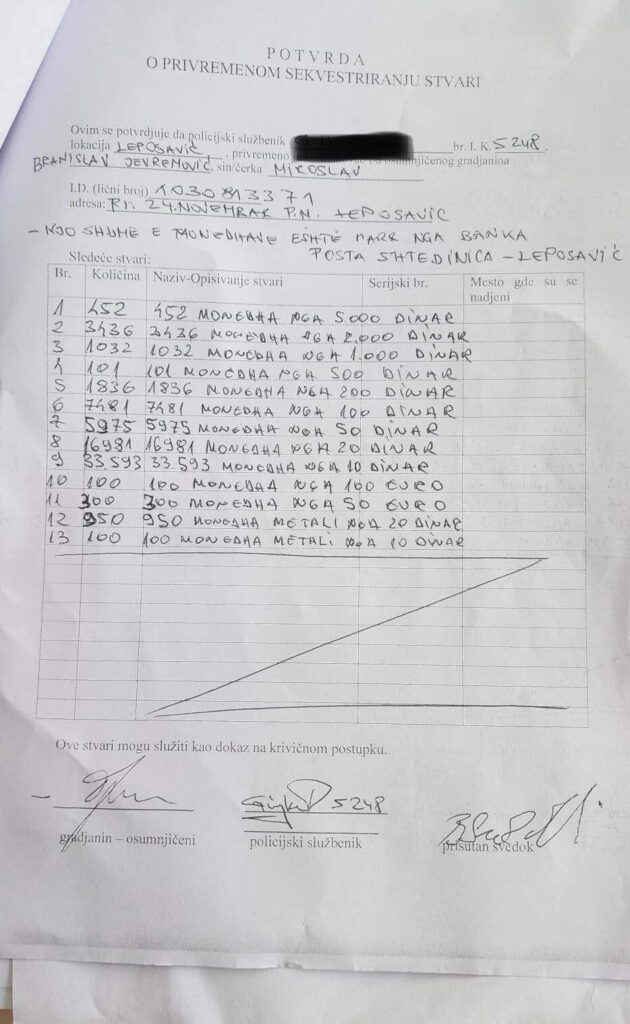 POTVRDA
O PRIVREMENOM SEKVESTRIRANJU STVARI
Ovim se potvrdjuje da policijski službenik br. I. K. 5248.
lokacija LEPOSAVIĆ, privremeno osumnjičenog gradjanina
BRANISLAV JEVREMOVIĆ, sin/ćerka MIROSLAV
I.D. (lični broj) 1030813371
adresa: 24. NOVEMBAR P.N. LEPOSAVIC
- KJO SHUME E MONEDHAVE ESHTË MARR NGA BANKA
POSTA SHTEDINICA - LEPOSAVIĆ
Sledeće stvari:
Br. Količina Naziv-Opisivanje stvari Serijski br. Mesto gde su se nadjeni
1 452 452 MONEDHA NGA 5.000 DINAR
2 3436 3436 MONEDHA NGA 2.000 DINAR
3 1032 1032 MONEDHA NGA 1.000 DINAR
4 101 101 MONEDHA NGA 500 DINAR
5 1836 1836 MONEDHA NGA 200 DINAR
6 7481 7481 MONEDHA NGA 100 DINAR
7 5975 5975 MONEDHA NGA 50 DINAR
8 16981 16981 MONEDHA NGA 20 DINAR
9 33.593 33.593 MONEDHA NGA 10 DINAR
10 100 100 MONEDHA NGA 100 EURO
11 300 300 MONEDHA NGA 50 EURO
12 950 950 MONEDHA METALI NGA 20 DINAR
13 100 100 MONEDHA METALI NGA 10 DINAR
Ove stvari mogu služiti kao dokaz na krivičnom postupku.
5248
gradjanin – osumnjičeni policijski službenik prisutan svedok